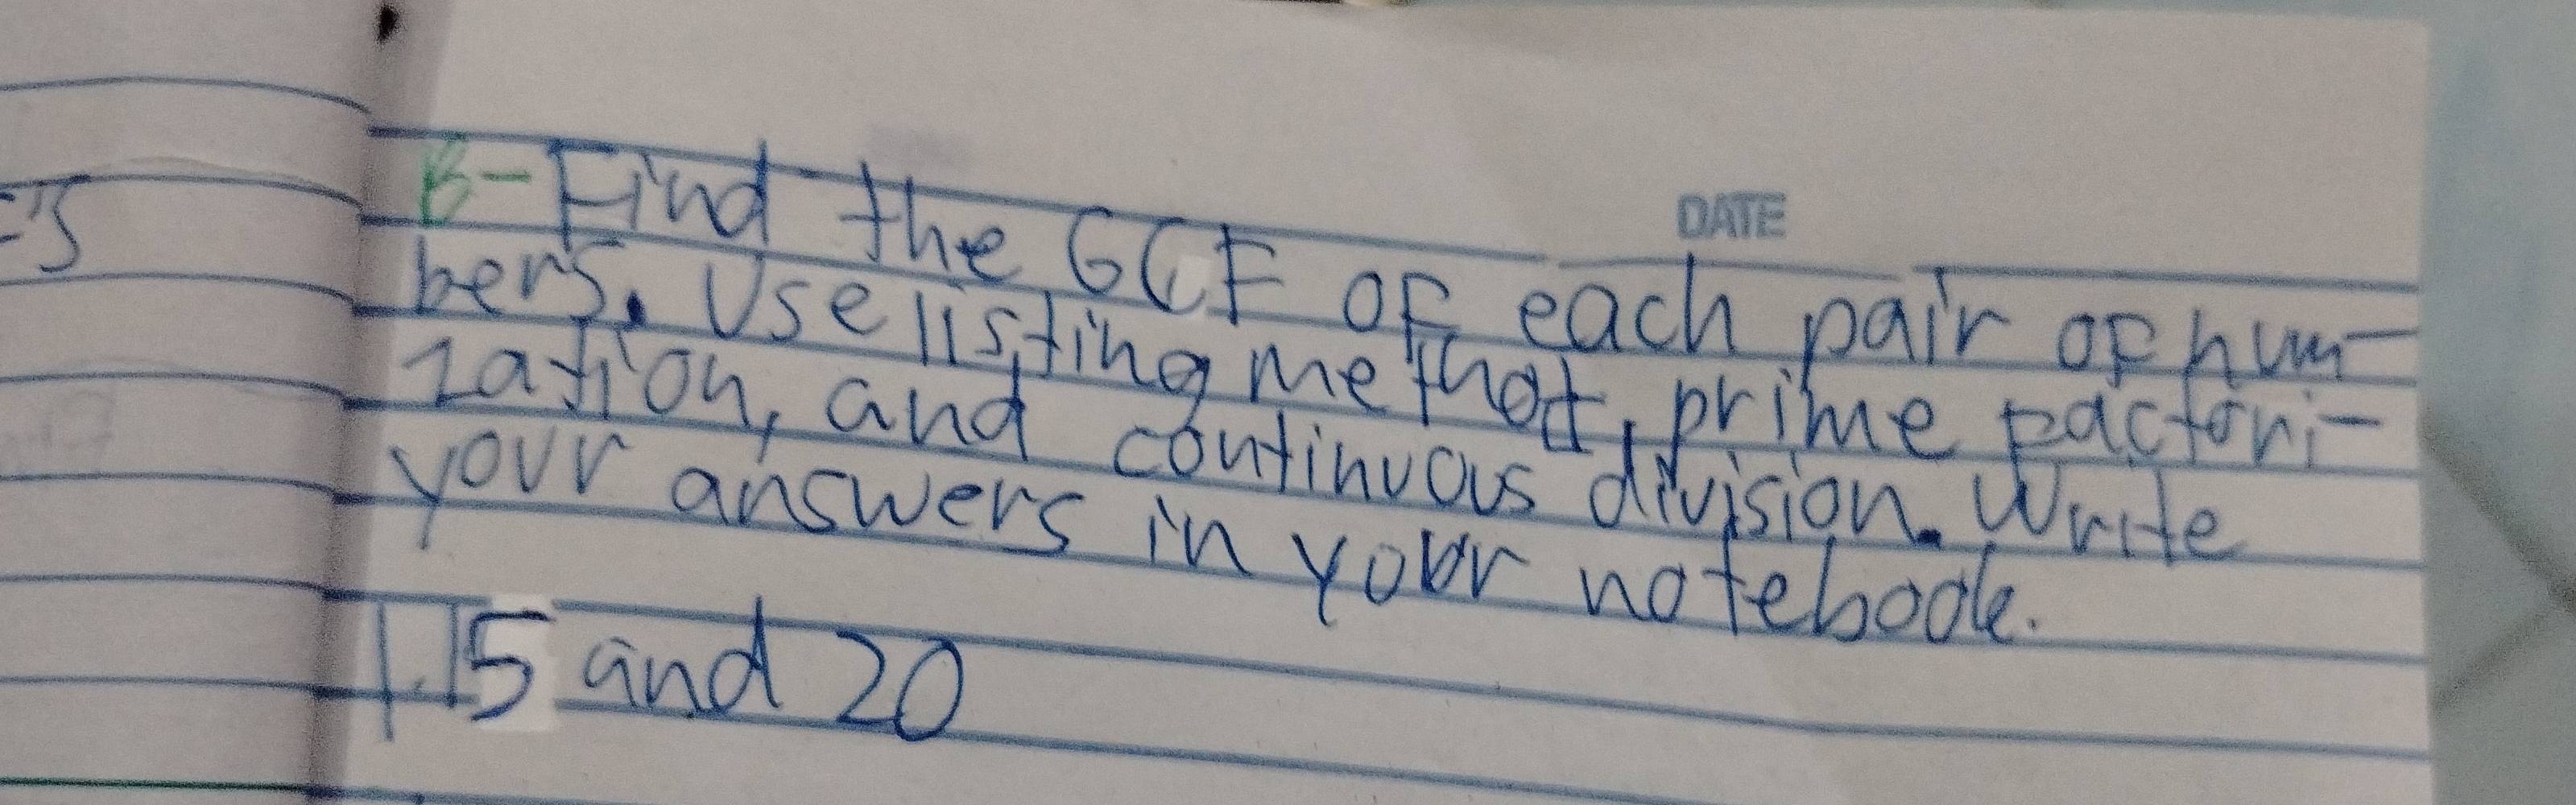 =5
DATE
B- Find the GCF of each pair of num-
bers. Use listing method, prime factori-
zation, and continuous division. Write
your answers in your notebook.
1. 15 and 20